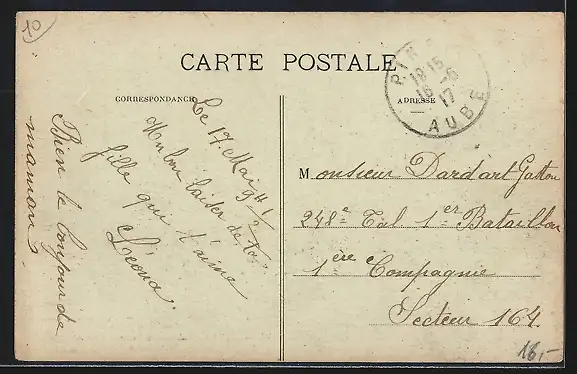 10
CARTE POSTALE
CORRESPONDANCE
ADRESSE
18 15
16 -6
17
AUBE
Le 17 Mai 9 H 1/2
Un bon baiser de ta
fille qui t'aime
Léona
Bien le bonjour de
maman
Monsieur Dardart Gaston
248e Tal 1er Bataillon
1ère Compagnie
Secteur 164.
18,-